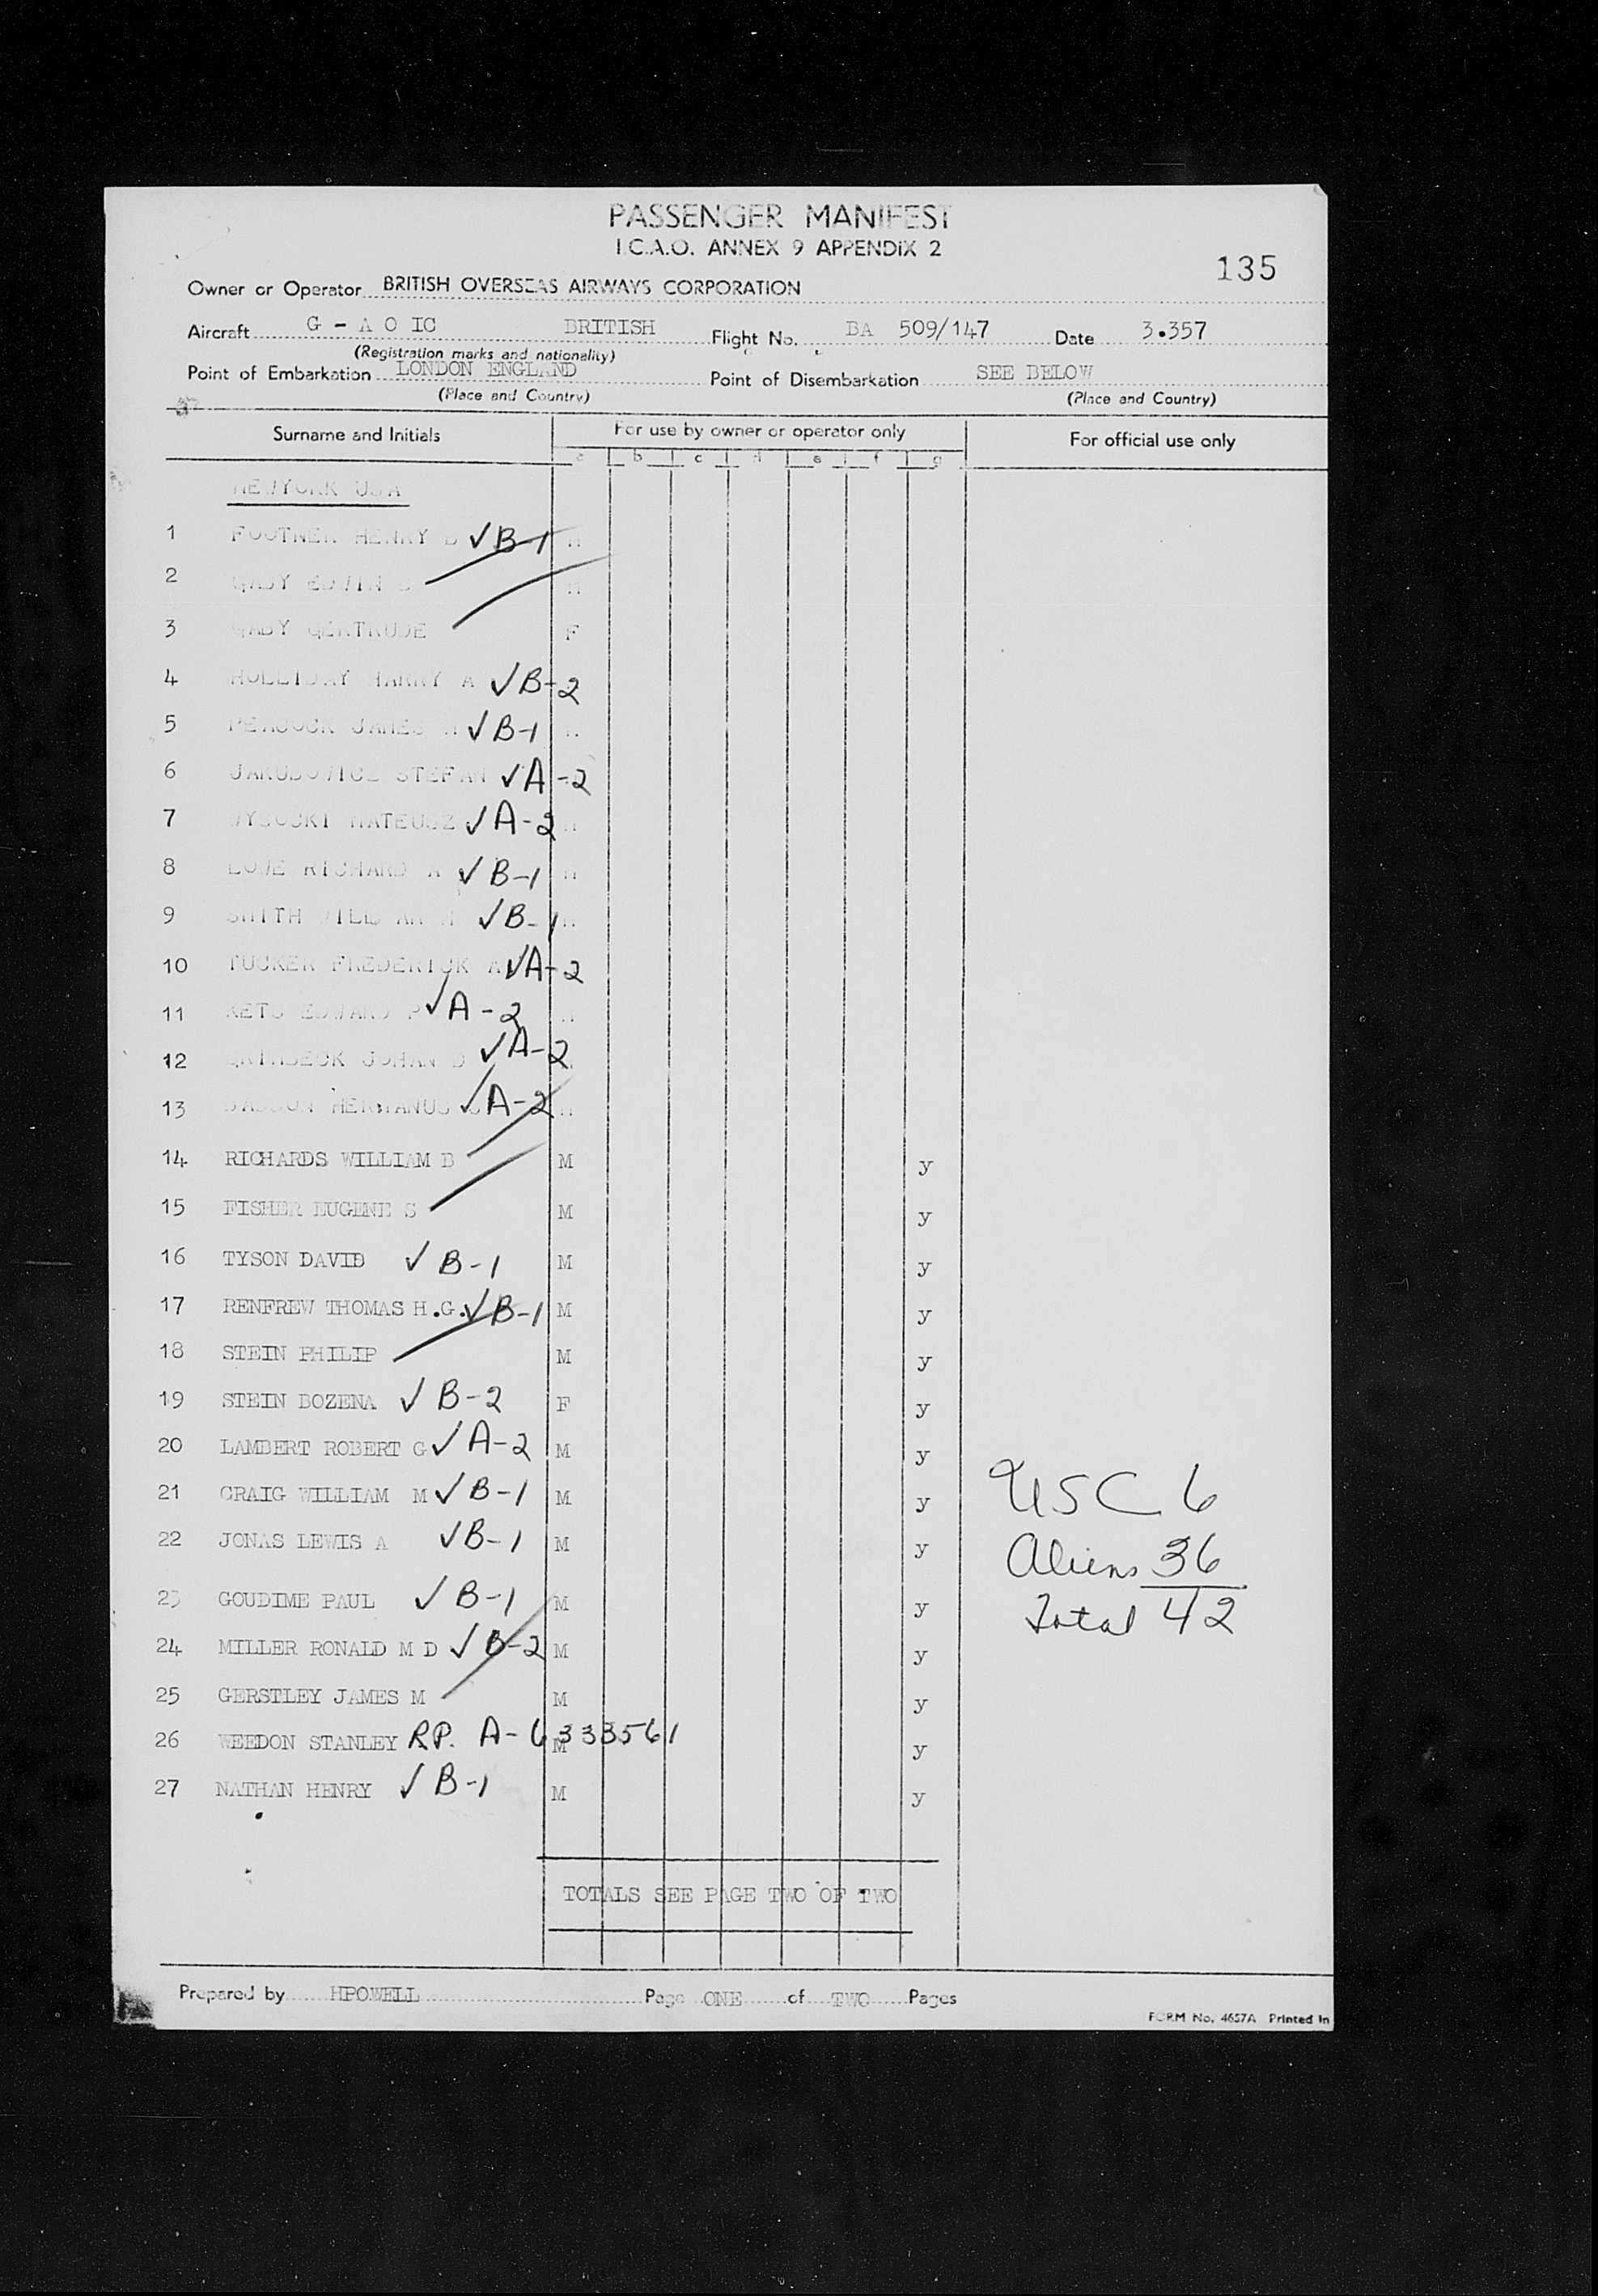 PASSENGER MANIFEST
I.C.A.O. ANNEX 9 APPENDIX 2
135
Owner or Operator BRITISH OVERSEAS AIRWAYS CORPORATION
Aircraft G - A O IC BRITISH Flight No. BA 509/147 Date 3.357
(Registration marks and nationality)
Point of Embarkation LONDON ENGLAND Point of Disembarkation SEE BELOW
(Place and Country) (Place and Country)
Surname and Initials For use by owner or operator only For official use only
a b c d e f g
NEWYORK USA
1 FOOTNER HENRY ✓ B-1 M
2 GABY EDWIN M
3 GABY GERTRUDE F
4 HOLLIDAY HARRY A ✓ B-2
5 PEACOCK JAMES ✓ B-1
6 JAKUBOWICZ STEFAN ✓ A-2
7 WYSOCKI MATEUSZ ✓ A-2
8 LOWE RICHARD A ✓ B-1 M
9 SMITH WILLIAM ✓ B-1
10 TUCKER FREDERICK A ✓ A-2
11 EDWARD P ✓ A-2
12 JOHAN ✓ A-2
13 HERMANUS ✓ A-2
14 RICHARDS WILLIAM B M y
15 FISHER EUGENE S M y
16 TYSON DAVID ✓ B-1 M y
17 RENFREW THOMAS H.G. ✓ B-1 M y
18 STEIN PHILIP M y
19 STEIN BOZENA ✓ B-2 F y
20 LAMBERT ROBERT G ✓ A-2 M y
21 CRAIG WILLIAM M ✓ B-1 M y
22 JONAS LEWIS A ✓ B-1 M y
23 GOUDIME PAUL ✓ B-1 M y
24 MILLER RONALD M D ✓ B-2 M y
25 GERSTLEY JAMES M M y
26 WEEDON STANLEY R.P. A-6333561 M y
27 NATHAN HENRY ✓ B-1 M y
USC 6
Aliens 36
Total 42
TOTALS SEE PAGE TWO OF TWO
Prepared by HPOWELL Page ONE of TWO Pages
FORM No. 4657A Printed in